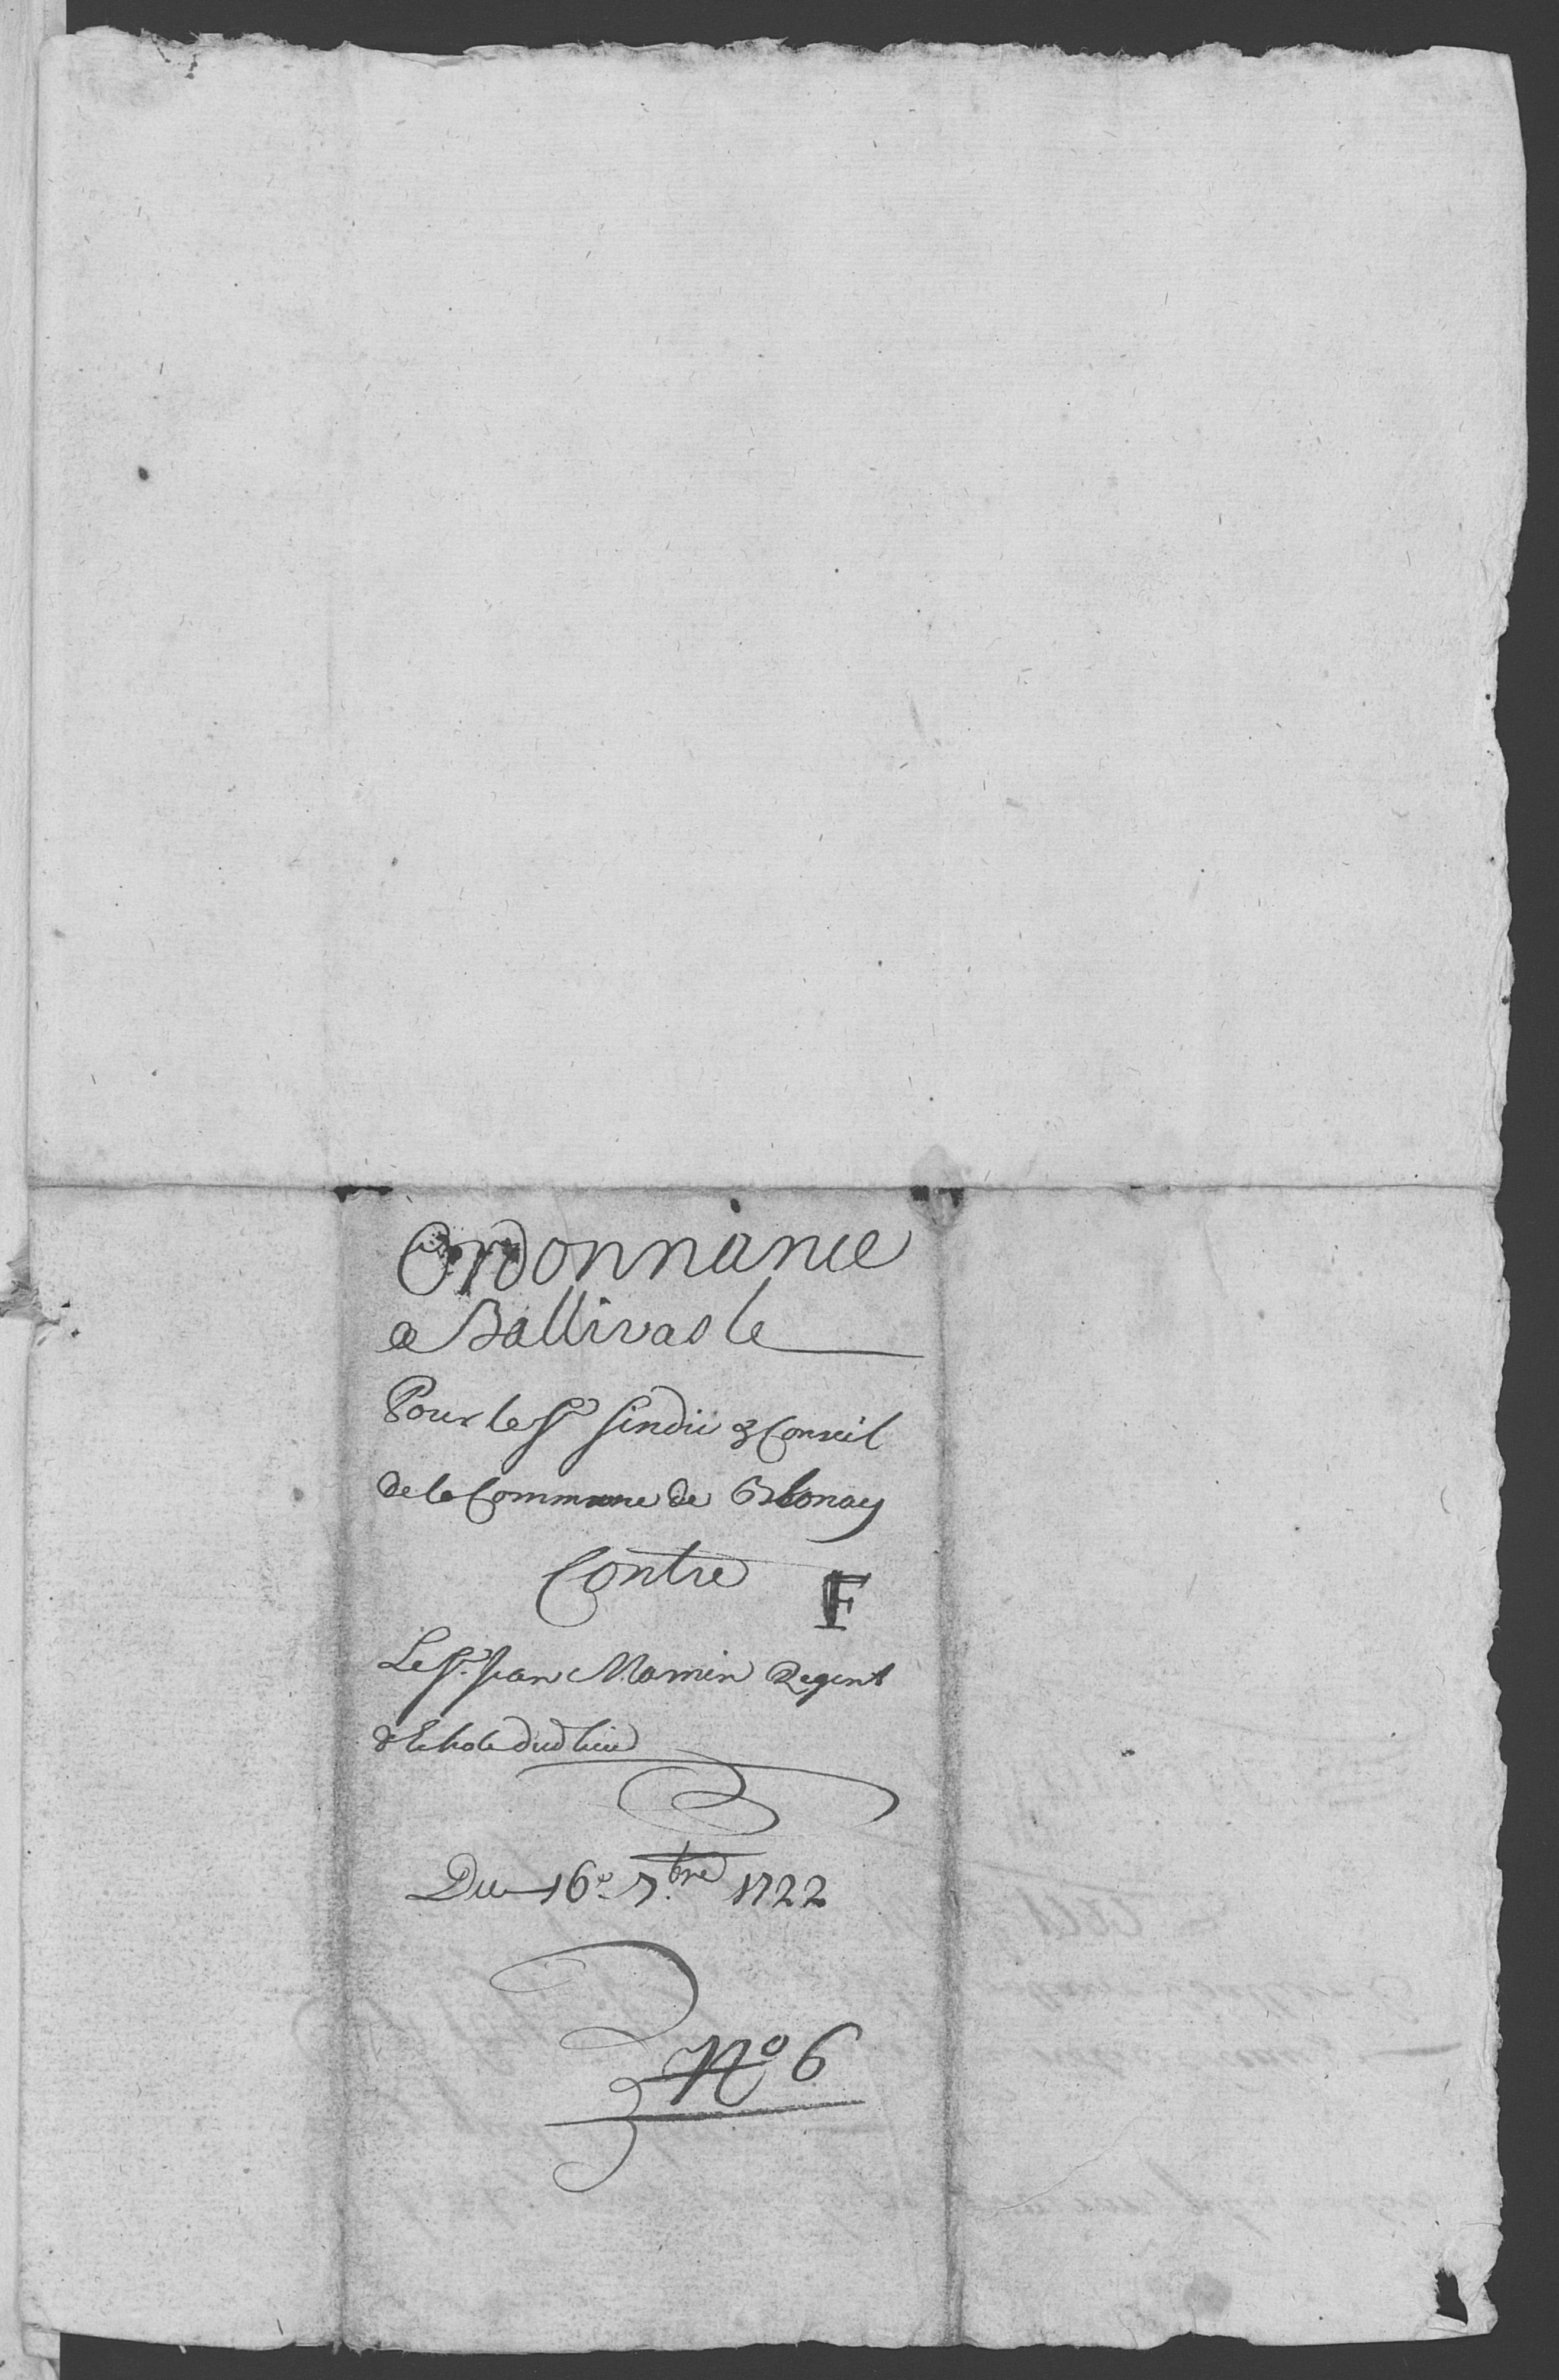 Ordonnance
Ballivale
Pour le Sr Sindic & Conseil
de la Commune de Blonay
Contre
F
Le Sr. Jean Mamin Regent
d'Echole dud lieu
Du 16e. 7.bre 1722
No 6